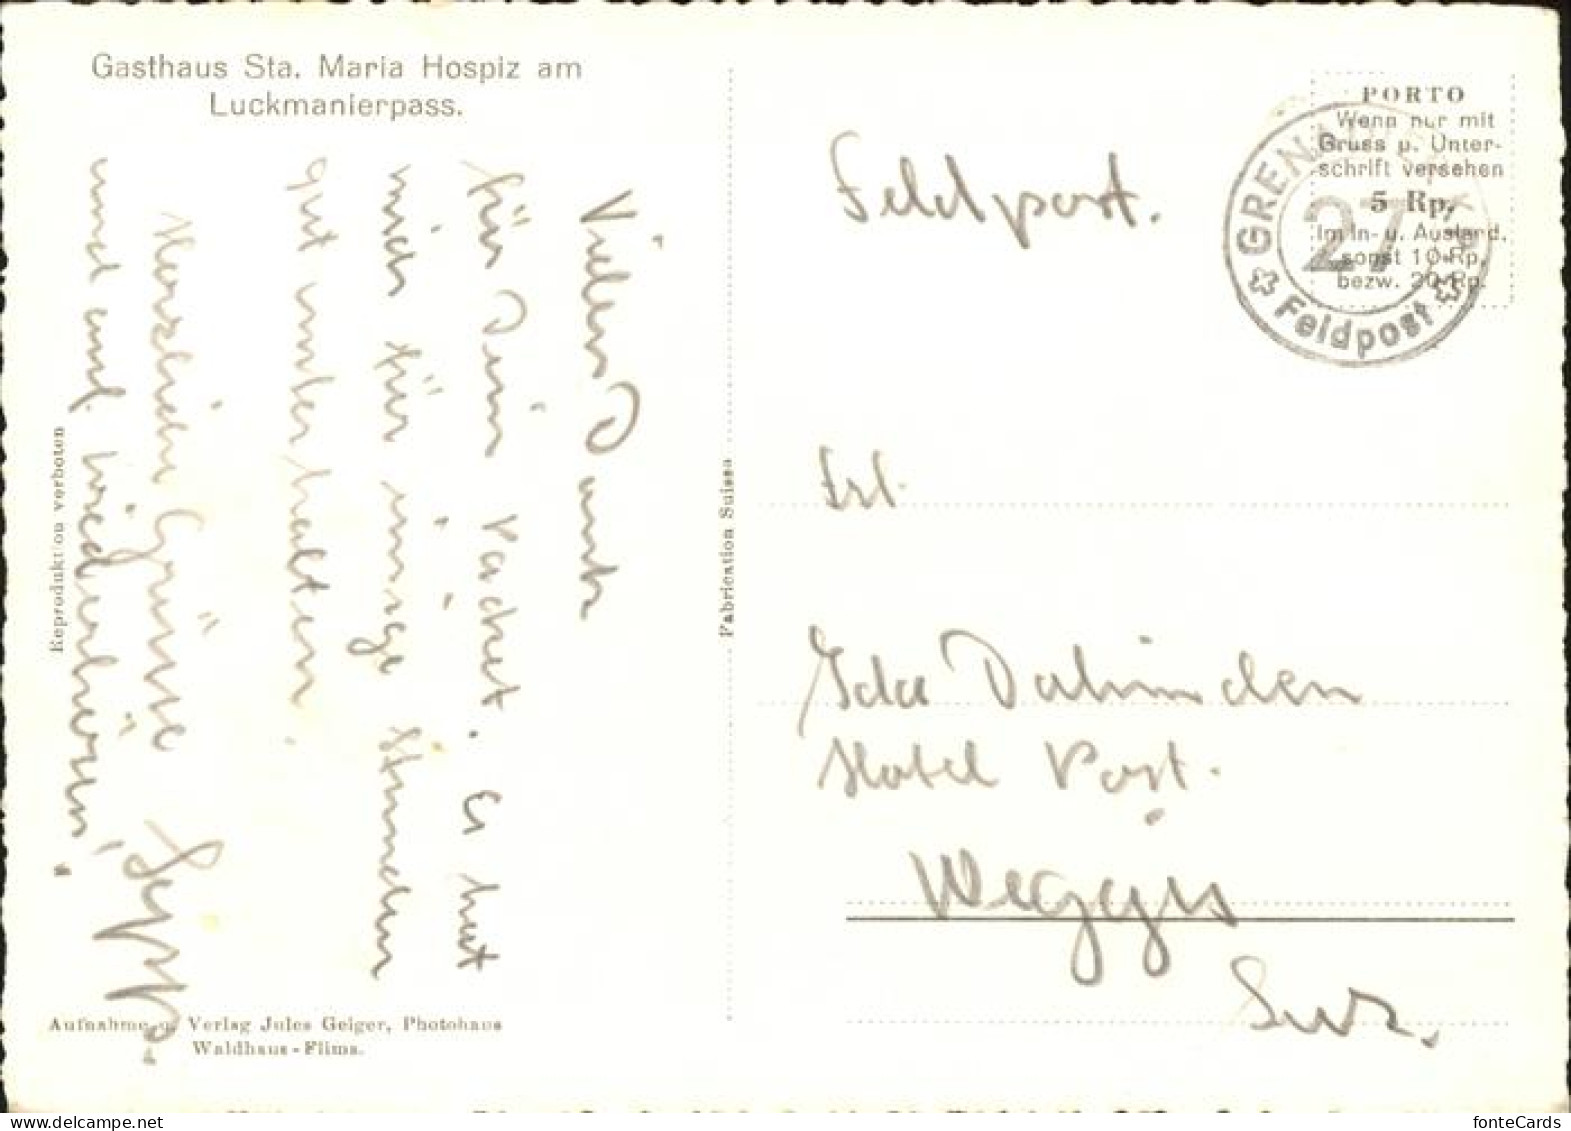 Gasthaus Sta. Maria Hospiz am
Luckmanierpass.
Vielen Dank
für Dein Packet. Es hat
mich für einige Stunden
gut unterhalten.
Herzliche Grüsse
und auf Wiederhören!
Reproduktion verboten
Aufnahme u. Verlag Jules Geiger, Photohaus
Waldhaus-Flims.
Fabrication Suisse
Feldpost.
PORTO
Wenn nur mit
Gruss u. Unter-
schrift versehen
5 Rp.
Im In- u. Ausland.
sonst 10 Rp.
bezw. 20 Rp.
27
Feldpost
Frl.
Ida Dahinden
Hotel Post.
Weggis
fonteCards